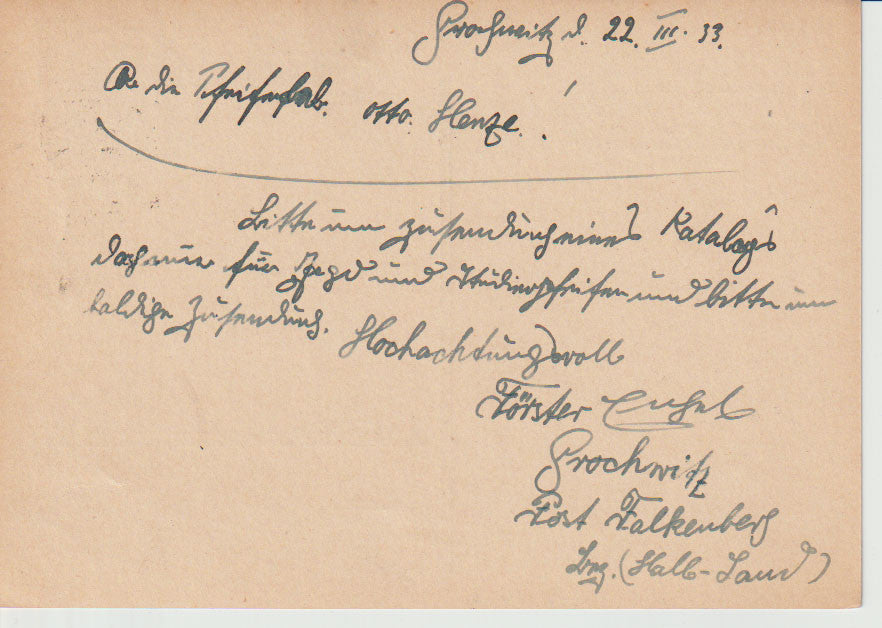 Grochwitz d. 22. III. 33.
An die Pfeifenfab. Otto Henze.!
Bitte um Zusendung eines Katalogs
doch nur für Jagd und Studierpfeifen und bitte um
baldige Zusendung.
Hochachtungsvoll
Förster
Grochwitz
Post Falkenberg
(Halb-Land)